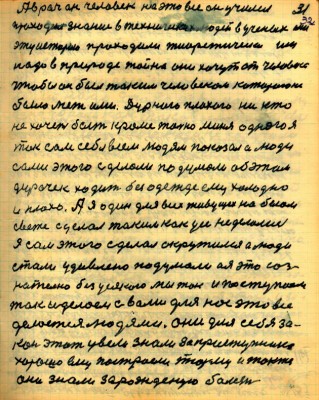 31
32
А врачан человек на это все они учили
проходил знание в техникумах людей в ученых
эту историю проходили теоретически им
надо в природе тайна они хочут от человека
чтобы он был таким человеком который
было мет или. Дурного плохого ни кто
не хочет быть кроме токо меня одного я
так сам себя всем людям показал а люди
сами этого сделали подумали об этом
дурачек ходит без одежде ему холодно
и плохо. А я один для всех живущих на белом
свете сделал таким как уи неделали
Я сам этого сделал окрутился а люди
стали удивлено подумали а я это соз-
нательно без условно мы так и поступаем
так и делаем с вами для нас это все
делается людями. Они для себя за-
кон этот увели знали за преступника
хорошо ему построели тюрму и
они знали зарожденую болезнь